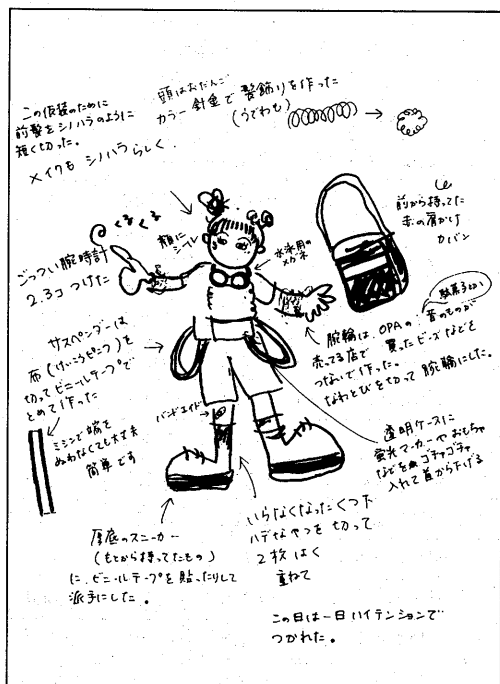 この仮装のために
前髪をシノハラのように
短く切った。
メイクも シノハラらしく.
頭はおだんご
カラー針金で髪飾りを作った
(うでわも)
くるくる
顔に
シール
水泳用の
メガネ
前から持ってた
赤の肩かけ
カバン
ごっつい腕時計
2.3コつけた
サスペンダーは
布(けいこうピンク)を
切ってビニールテープで
とめて作った
ミシンで端を
ぬわなくても大丈夫
簡単です
バンドエイド
駄菓子とか
腕輪は、OPAの昔のものが
売ってる店で 買ったビーズなどを
つないで作った。
なわとびを切って腕輪にした。
透明ケースに
蛍光マーカーやおもちゃ
などをゴチャゴチャ
入れて首から下げる
厚底のスニーカー
(もとから持ってたもの)
に、ビニールテープを貼ったりして
派手にした。
いらなくなったくつ下
ハデなやつを切って
2枚はく
重ねて
この日は一日ハイテンションで
つかれた。